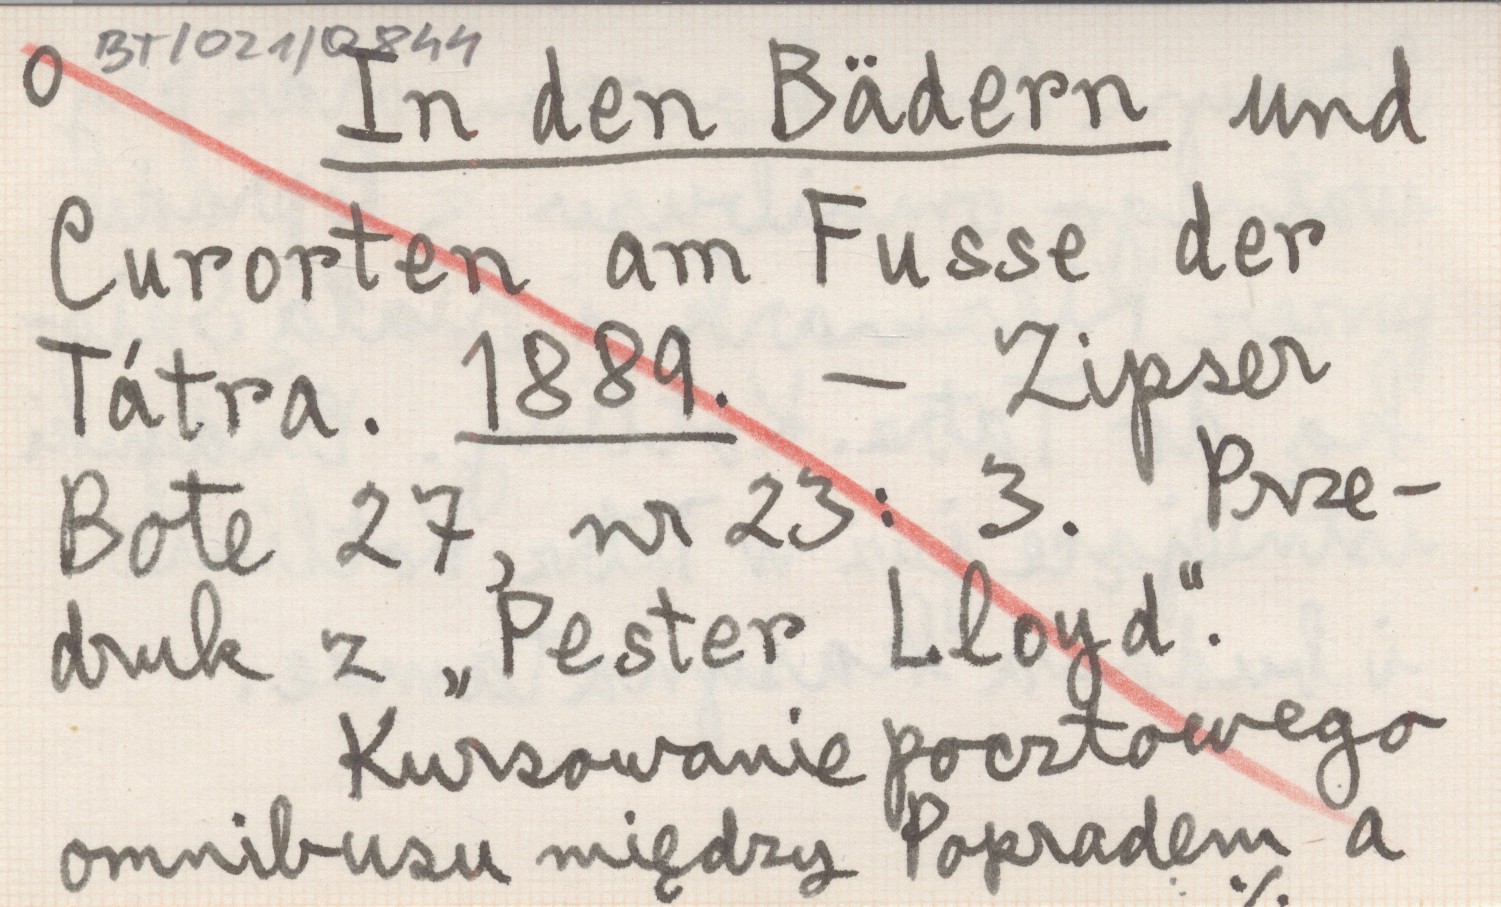 BT/021/0844
O In den Bädern und
Curorten am Fusse der
Tátra. 1889. – Zipser
Bote 27, nr 23: 3. Prze-
druk z „Pester Lloyd“.
Kursowanie pocztowego
omnibusu między Popradem a
./.